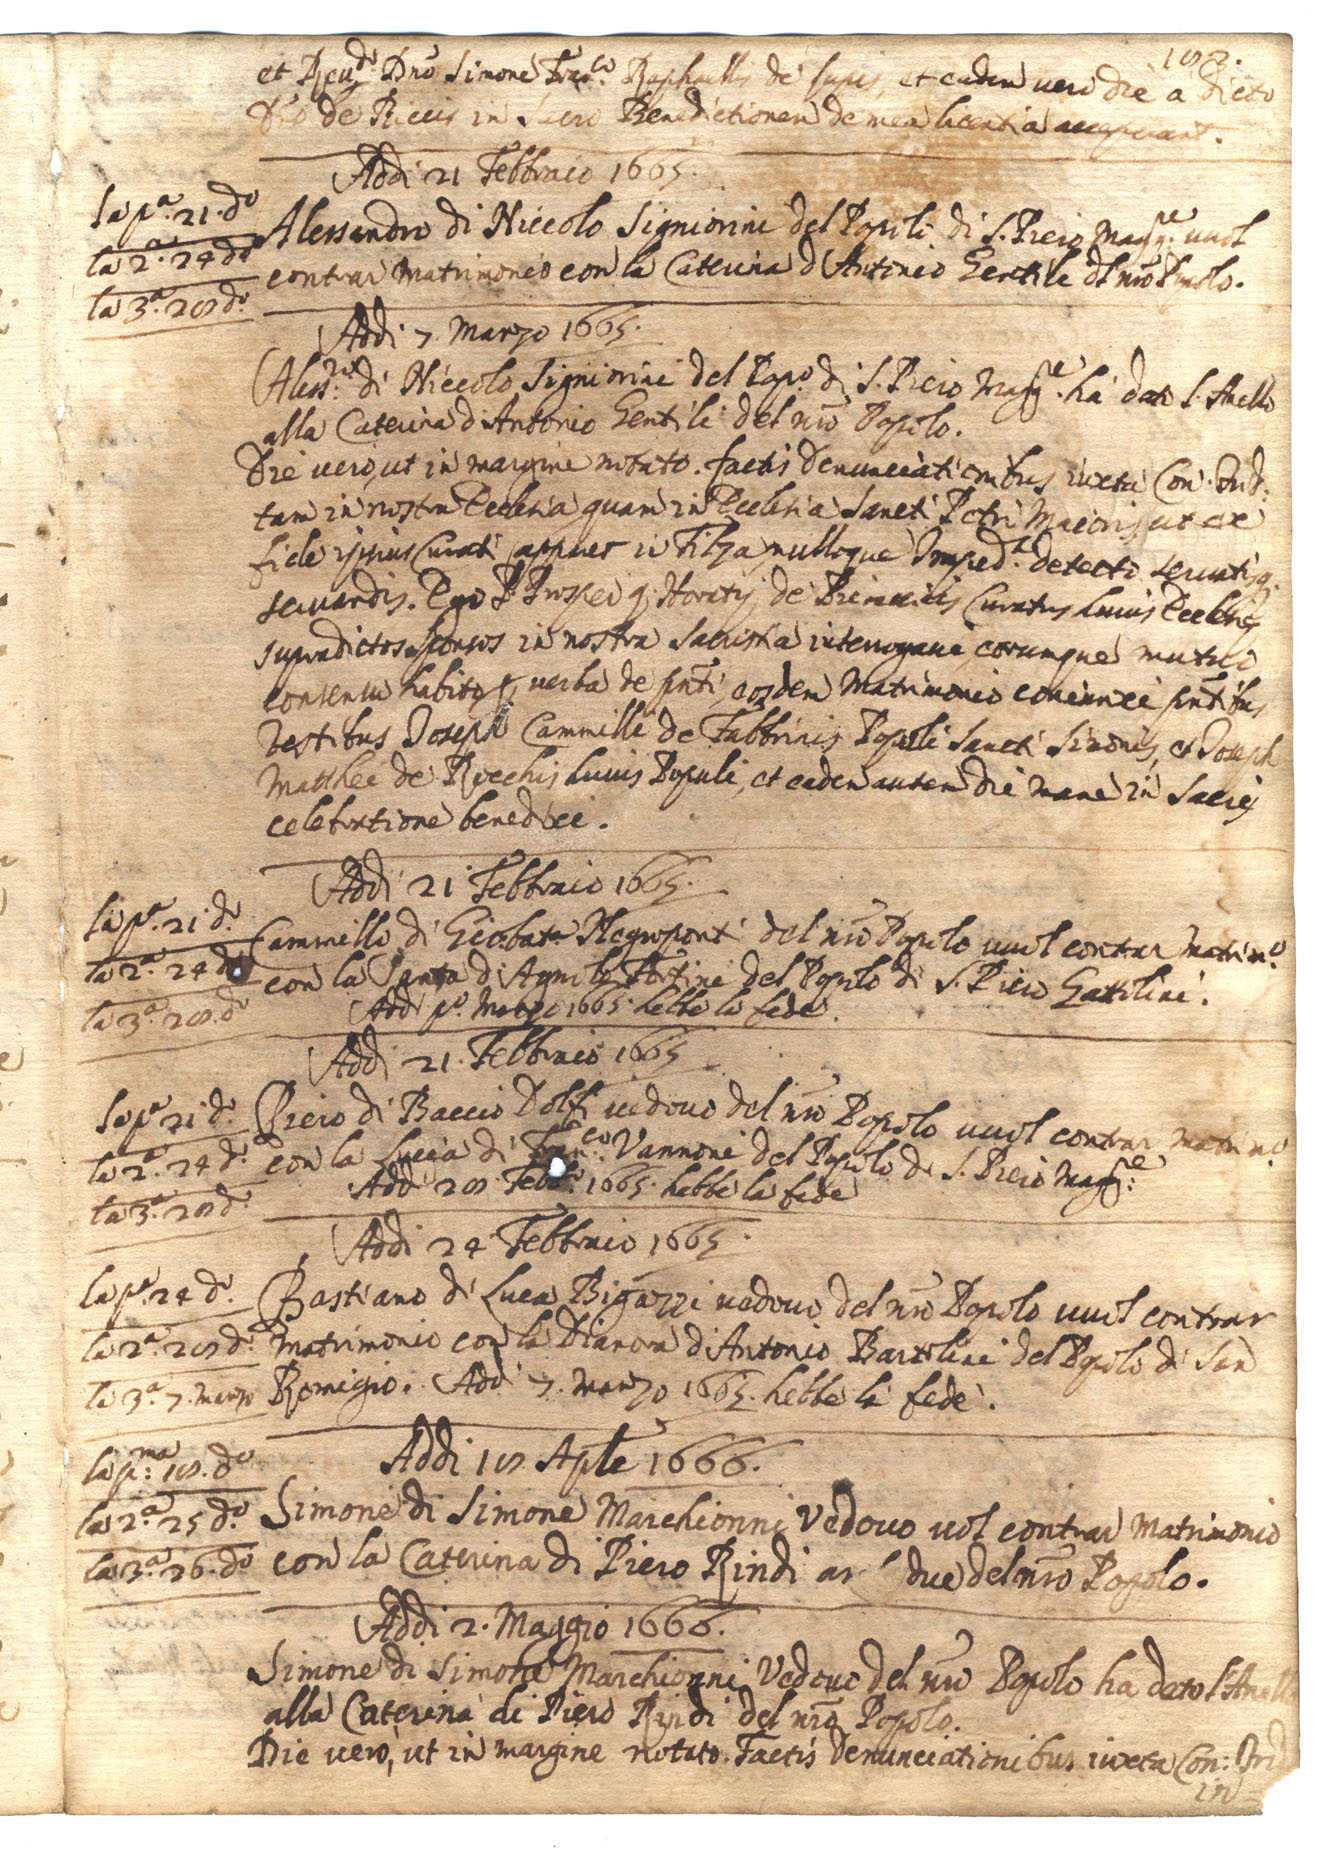 et Reu.do Dno Simone Fran.co Raphaellis de Lupis, et eadem uero die a dicto
Dno de Riccis in Sacro Benedictionem de mea licentia acceperant.
Addi 21 Febbraio 1665.
la p.a 21. do
la 2.a 24 do
la 3.a 28 do.
Alessandro di Niccolo Signiorini del Popolo di S. Piero Magg.re uuol
contrar Matrimonio con la Caterina d'Antonio Gentili del nro Popolo.
Addi 7. Marzo 1665.
Aless.ro di Niccolo Signiorini del Popo. di S. Piero Magg.re ha dato l'Anello
alla Caterina d'Antonio Gentili del nro Popolo.
Die uero, ut in margine notato. factis denunciationibus iuxta Con. Trid:
tam in nostra Ecclesia, quam in Ecclesia Sancti Petri Maioris, ut ex
fide ipsius Curati apparet in Filza, nulloque Imped.to detecto seruatisq.
seruandis. Ego P. Prosper q. Horatij de Curatus huius Ecclesie
supradictos sponsos in nostra Sacristia interrogaui, eorumque mutuo
consensu habito p. uerba de pnti, eosdem Matrimonio coniunxi pntibus
testibus Joseph Cammilli de Fabbrinis Populi Sancti Simonis, et Joseph
Matthei de Rocchis huius Populi, et eadem autem die mane in Sacrej
celebratione benedixi.
Addi 21 Febbraio 1665.
la p.a 21 do.
la 2.a 24 do
la 3.a 28. do
Cammillo di Gio.bat.a Negroponti del nro Popolo uuol contrar Matrim.o
con la Santa di Agnolo Fortini del Popolo di S. Piero Gattolini.
Addi p.o Marzo 1665. hebbe la fede.
Addi 21. Febbraio 1665
la p.a 21 do.
la 2.a 24 do.
la 3.a 28 do.
Piero di Baccio Dolfi uedouo del nro Popolo uuol contrar Matrim.o
con la Lucia di Fran.co Vannoni del Popolo di S. Piero Magg.re
Addi 28 Febb.o 1665. hebbe la fede
Addi 24 Febbraio 1665.
la p.a 24 do.
la 2.a 28 do.
la 3.a 7. Marzo
Bastiano di Luca Bigazzi uedouo del nro Popolo uuol contrar
Matrimonio con la Dianora d'Antonio Bartolini del Popolo di San
Romigio. Addi 7. Marzo 1665. hebbe la fede.
Addi 18. Aple 1666.
la p:ma 18. do
la 2.a 25 do.
la 3.a 26. do
Simone di Simone Marchionni Vedouo uol contrar Matrimonio
con la Caterina di Piero Rindi due del nro Popolo.
Addi 2. Maggio 1666.
Simone di Simone Marchionni Vedouo del nro Popolo ha dato l'Anello
alla Caterina di Piero Rindi del nro Popolo.
Die uero, ut in margine notato. Factis denunciationibus iuxta Con: Trid
in